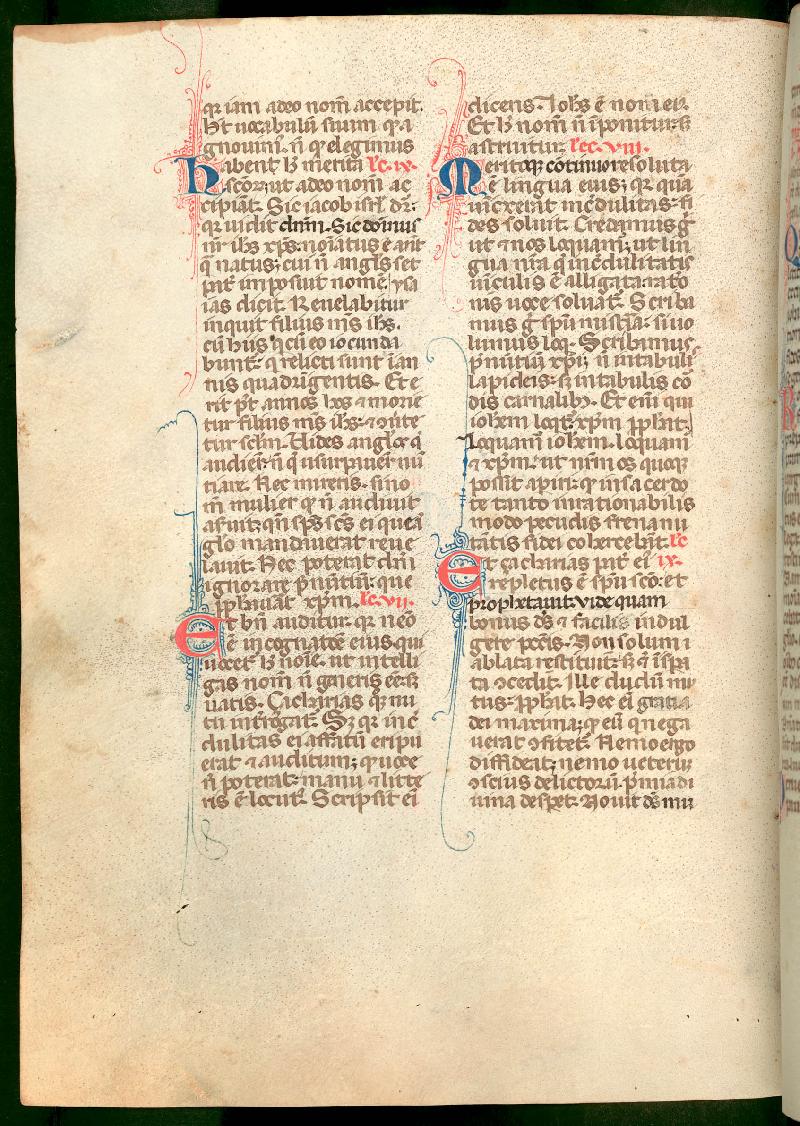 qr iam a deo nom̄ accepit.
H̄t uocabulū suum q̄ a
gnouim᷒. n̄ q̄ elegimus
Habent h̄ merita lc̄. ix.
sc̄oꝝ ut a deo nom̄ ac
cipiāt. Sic iacob isrl̄ dr̄:
qr uidit dm̄. Sic dominus
nr̄ ih̄s xp̄s noīatus ē ant̄
q̄ natus; cui n̄ angl̄s set
pat̄ imposuit nomē. ysa
ias dicit. Reuelabitur
inquit filius m̄s ih̄s.
cū hiis q̄ cū eo iocunda
bunt᷒: q̄ relicti sunt ī an
nis quadringentis. Et e
rit p᷒t annos hos ⁊ morie
tur filius m̄s ih̄s: ⁊ ꝯūte
tur sclm̄. Uides angl̄oꝝ q̄
audier̄: n̄ q̄ usurpauer̄ nū
tiare. Nec mireris. si no
m̄ mulier q̄ n̄ audiuit
asruit: qn̄ sp̄s sc̄s ei que ā
gl̄o mandauerat reue
lauit. Nec poterat dm̄i
ignorare p̄nūtiū: que
ꝓph̄auāt xp̄m. lc̄. vii.
Et bn̄ auditur. qr neō
ē in cognatōe eius qui
uocet᷒ h̄ noīe. ut intelli
gas nom̄ n̄ generis eē: s;
uatis. Çacharias q̄ mu
tū int̄rogat᷒. Sꝫ qr inc̄
dulitas ei affatū eripu
erat ⁊ auditum; q̄ uoce
n̄ poterat: manu ⁊ litte
ris ē locut᷒. Scripsit ei
dicens. Ioh̄s ē nomē ei᷒.
Et h̄ nom̄ n̄ īponitur: s;
astruitur lec. viii.
Meritoqꝫ cōtinuo resoluta
ē lingua eius; qr quā
uīxerat inc̄dulitas: fi
des soluit. Credamus ḡ
ut ⁊ nos loquam᷒; ut lin
gua nr̄a q̄ inc̄dulitatis
uīculis ē alligata: ratō
nis uoce soluat᷒. Scriba
mus ḡ sp̄u misteria: si uo
lumus loq̄. Scribamus
p̄nūtiū xp̄i; n̄ in tabulis
lapideis: s; in tabulis cō
dis carnalibꝫ. Et eni᷒ qui
ioh̄em loqt᷒: xp̄m ꝓph̄at;
Loquam᷒ ioh̄em. loquam᷒
⁊ xp̄m. ut nr̄m os quoqꝫ
possit apiri: q̄ in sacerdo
te tanto irrationabilis
modo pecudis frena nu
tātis fidei cohercebāt. lc̄
Et çacharias pat̄ ei᷒ ix.
repletus ē sp̄u sc̄o: et
prophetauit. vide quam
bonus d̄s ⁊ facilis indul
gere pc̄c̄is. Non solum i
ablata restituit: s; ⁊ īspa
ta ꝯcedit. Ille dudū mu
tus: ꝓph̄at. Hec ei᷒ gratia
dei maxima; q̄ eū q̄ nega
uerat ꝯfitet᷒. Nemo ergo
diffideat; nemo ueteriꝫ
ꝯscius delictoꝝ. p̄mia di
uina despet. Nouit d̄s mu